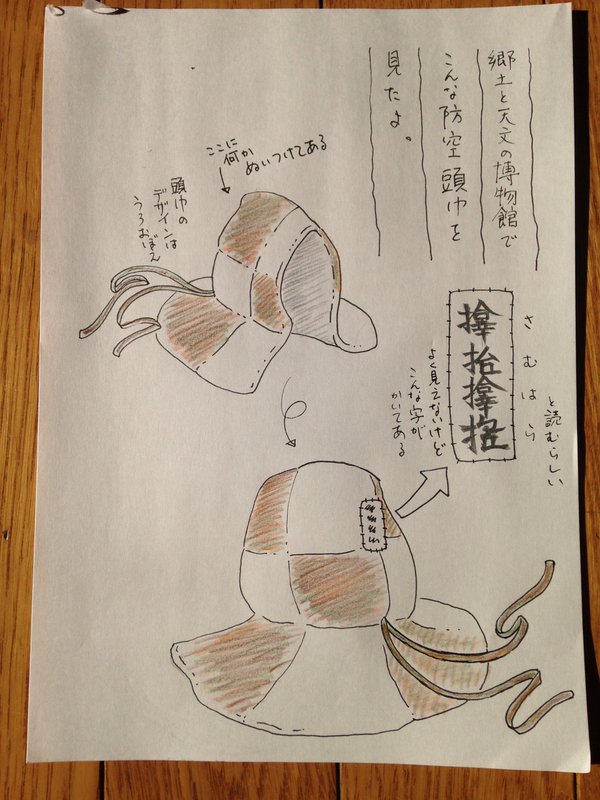 郷土と天文の博物館で
こんな防空頭巾を
見たよ。
ここに
何か
ぬいつけてある
頭巾の
デザインは
うろおぼえ
さむはら
と読むらしい
抬
よく見えないけど
こんな字が
かいてある